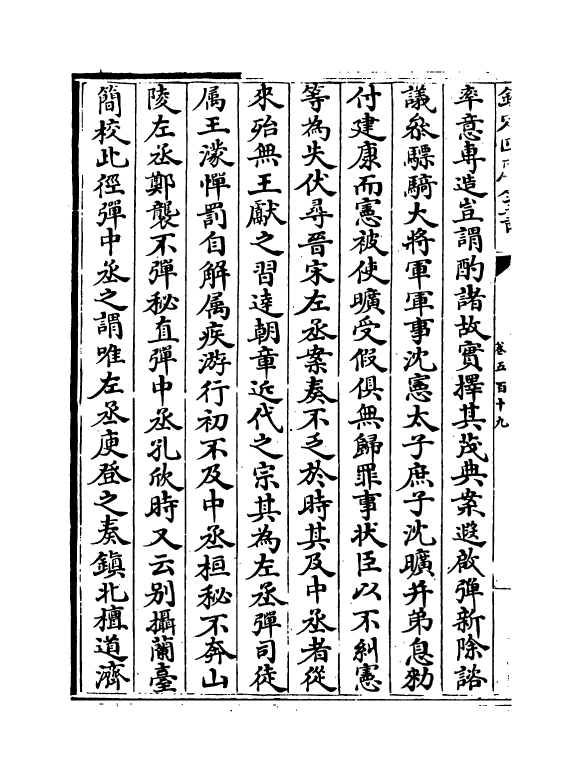 欽定四庫全書
卷五百十九
率意専造豈謂酌諸故實擇其茂典案遐啟彈新除諮
議㕘驃騎大將軍軍事沈憲太子庶子沈曠并弟息勑
付建康而憲被使曠受假俱無歸罪事狀臣以不糾憲
等為失伏尋晉宋左丞案奏不乏於時其及中丞者從
來殆無王獻之習達朝章近代之宗其為左丞彈司徒
属王濛憚罰自解属疾游行初不及中丞桓秘不奔山
陵左丞鄭襲不彈秘直彈中丞孔欣時又云别攝蘭臺
簡校此徑彈中丞之謂唯左丞庾登之奏鎮北檀道濟